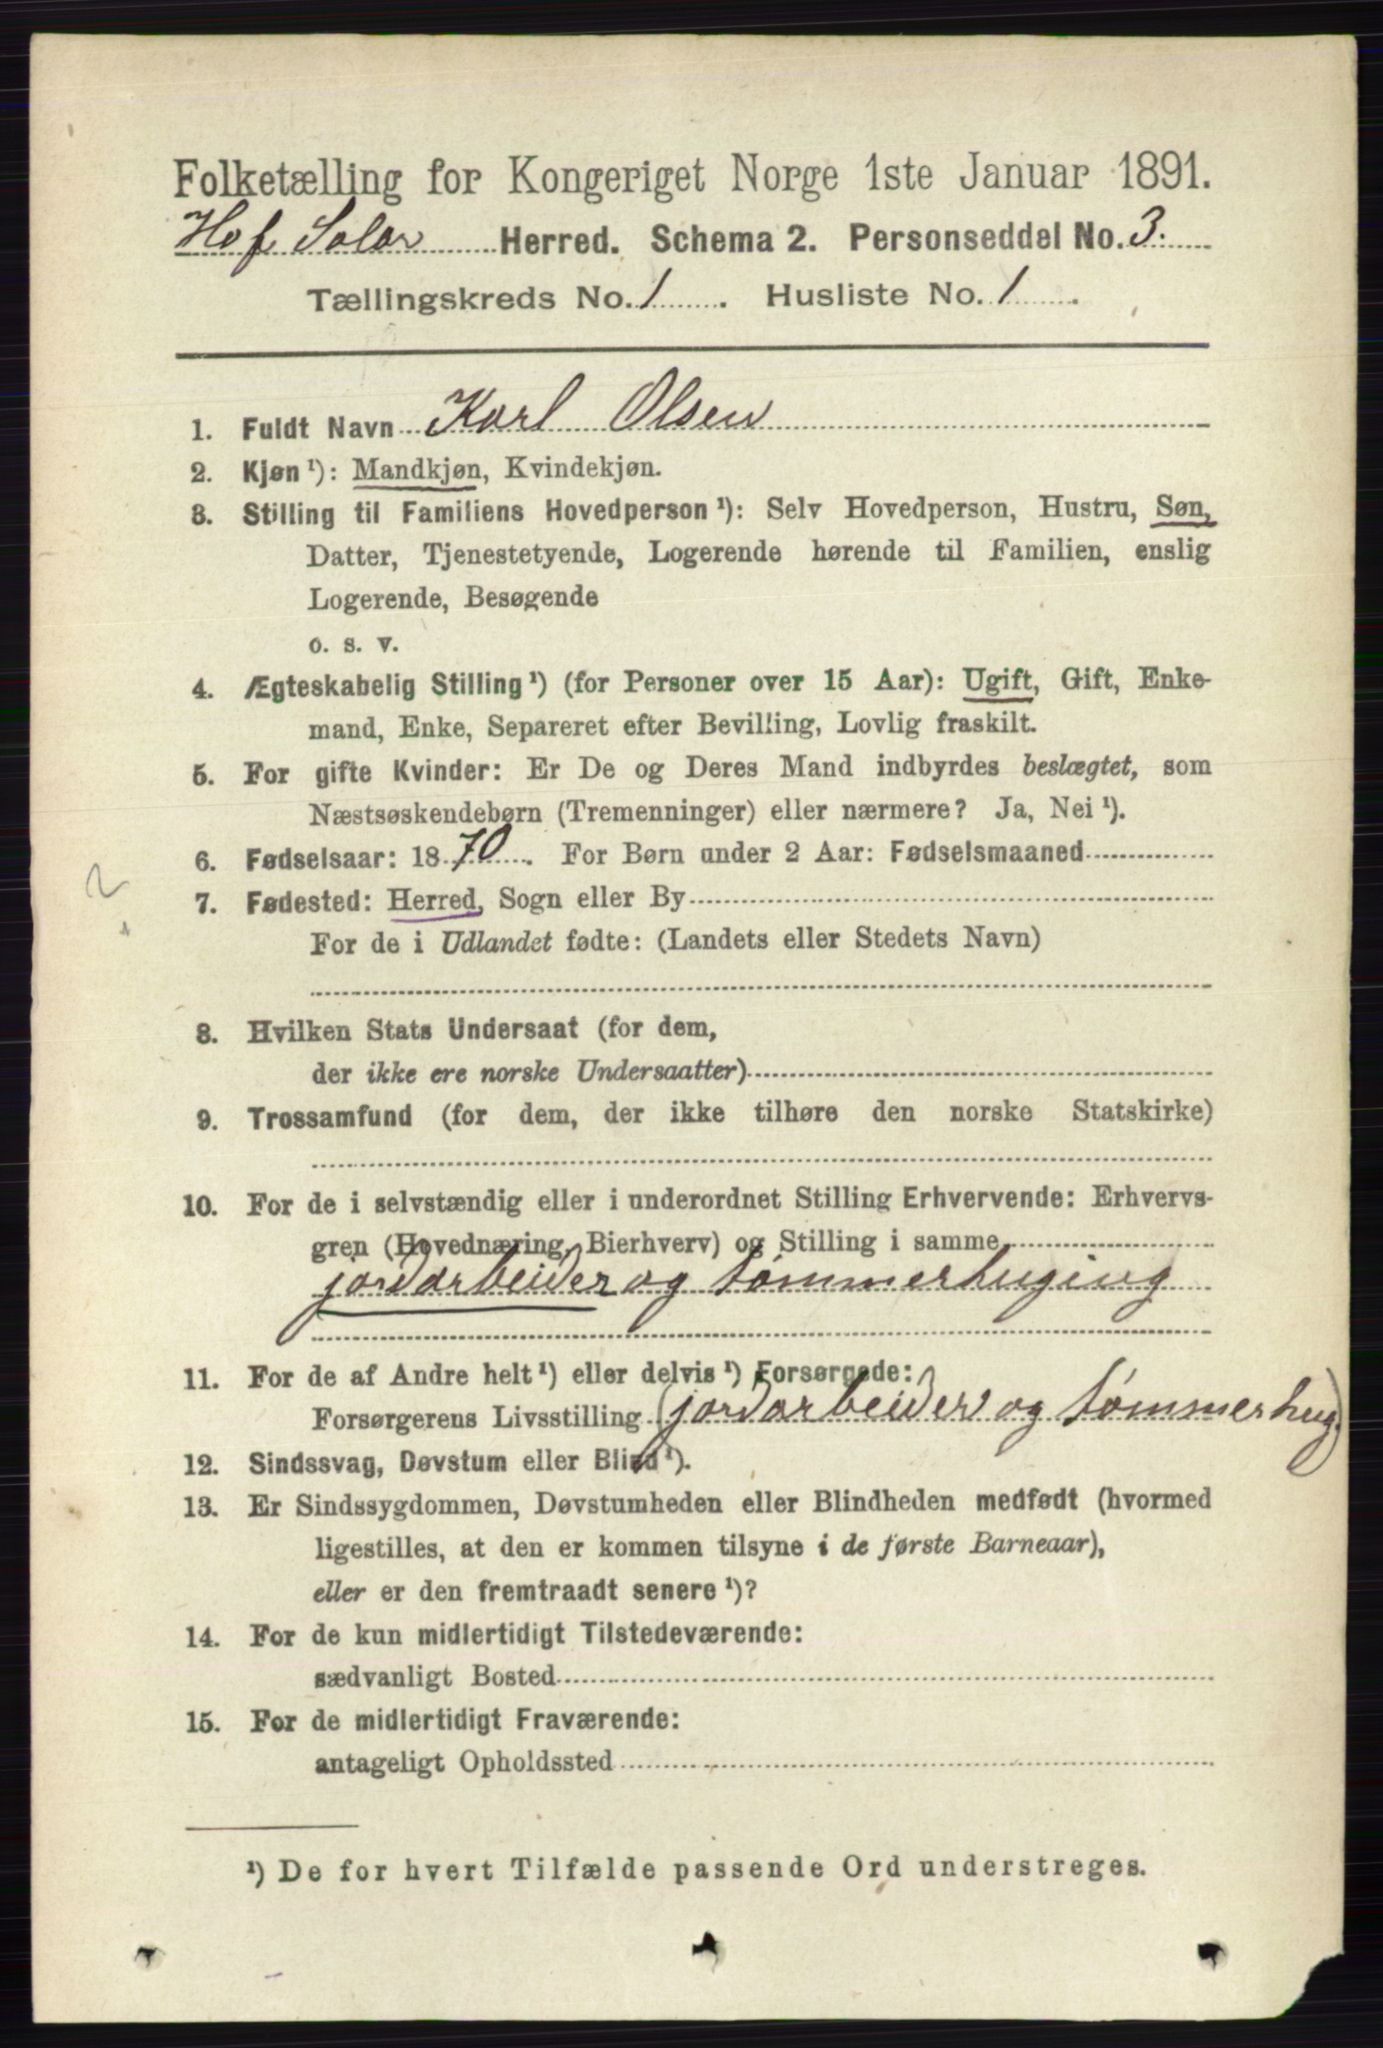 Folketælling for Kongeriget Norge 1ste Januar 1891.
Hof Solør Herred. Schema 2. Personseddel No. 3.
Tællingskreds No. 1. Husliste No. 1.
1. Fuldt Navn Karl Olsen
2. Kjøn ¹): Mandkjøn, Kvindekjøn.
3. Stilling til Familiens Hovedperson ¹): Selv Hovedperson, Hustru, Søn,
Datter, Tjenestetyende, Logerende hørende til Familien, enslig
Logerende, Besøgende
o. s. v.
4. Ægteskabelig Stilling ¹) (for Personer over 15 Aar): Ugift, Gift, Enke-
mand, Enke, Separeret efter Bevilling, Lovlig fraskilt.
5. For gifte Kvinder: Er De og Deres Mand indbyrdes beslægtet, som
Næstsøskendebørn (Tremenninger) eller nærmere? Ja, Nei ¹).
2
6. Fødselsaar: 1870. For Børn under 2 Aar: Fødselsmaaned
7. Fødested: Herred, Sogn eller By
For de i Udlandet fødte: (Landets eller Stedets Navn)
8. Hvilken Stats Undersaat (for dem,
der ikke ere norske Undersaatter)
9. Trossamfund (for dem, der ikke tilhøre den norske Statskirke)
10. For de i selvstændig eller i underordnet Stilling Erhvervende: Erhvervs-
gren (Hovednæring, Bierhverv) og Stilling i samme
jordarbeider og tømmerhuging
11. For de af Andre helt ¹) eller delvis ¹) Forsørgede:
Forsørgerens Livsstilling (jordarbeider og tømmerhug.)
12. Sindssvag, Døvstum eller Blind ¹).
13. Er Sindssygdommen, Døvstumheden eller Blindheden medfødt (hvormed
ligestilles, at den er kommen tilsyne i de første Barneaar),
eller er den fremtraadt senere ¹)?
14. For de kun midlertidigt Tilstedeværende:
sædvanligt Bosted
15. For de midlertidigt Fraværende:
antageligt Opholdssted
¹) De for hvert Tilfælde passende Ord understreges.